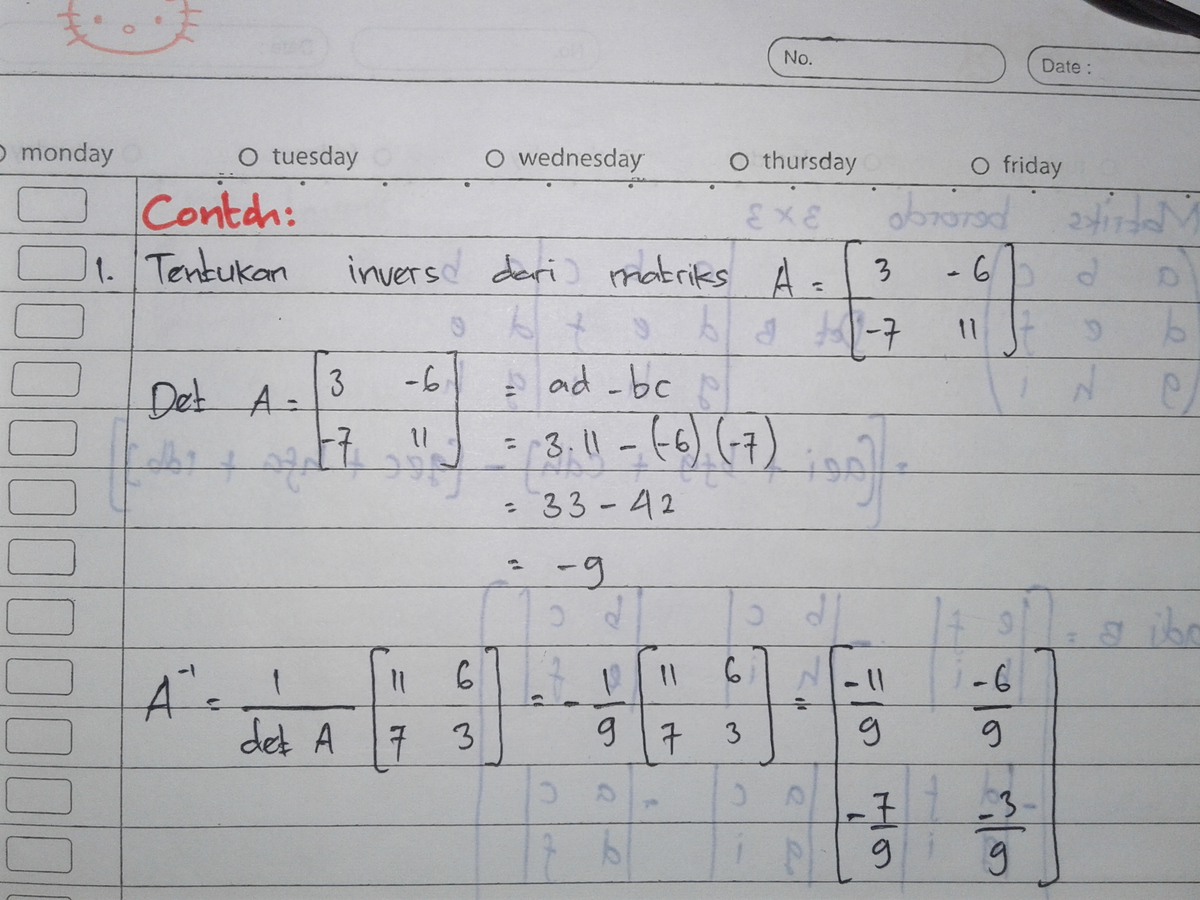 No. Date :
monday tuesday wednesday thursday friday
Contoh:
1. Tentukan invers dari matriks A = [3 -6
-7 11]
Det A = [3 -6 = ad - bc
-7 11] = 3.11 - (-6) (-7)
= 33 - 42
= -9
A⁻¹ = 1/det A [11 6 = - 1/9 [11 6 = [-11/9 -6/9
7 3] 7 3] -7/9 -3/9]